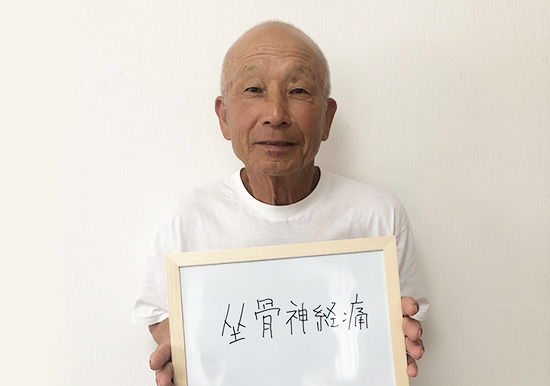 坐骨神経痛